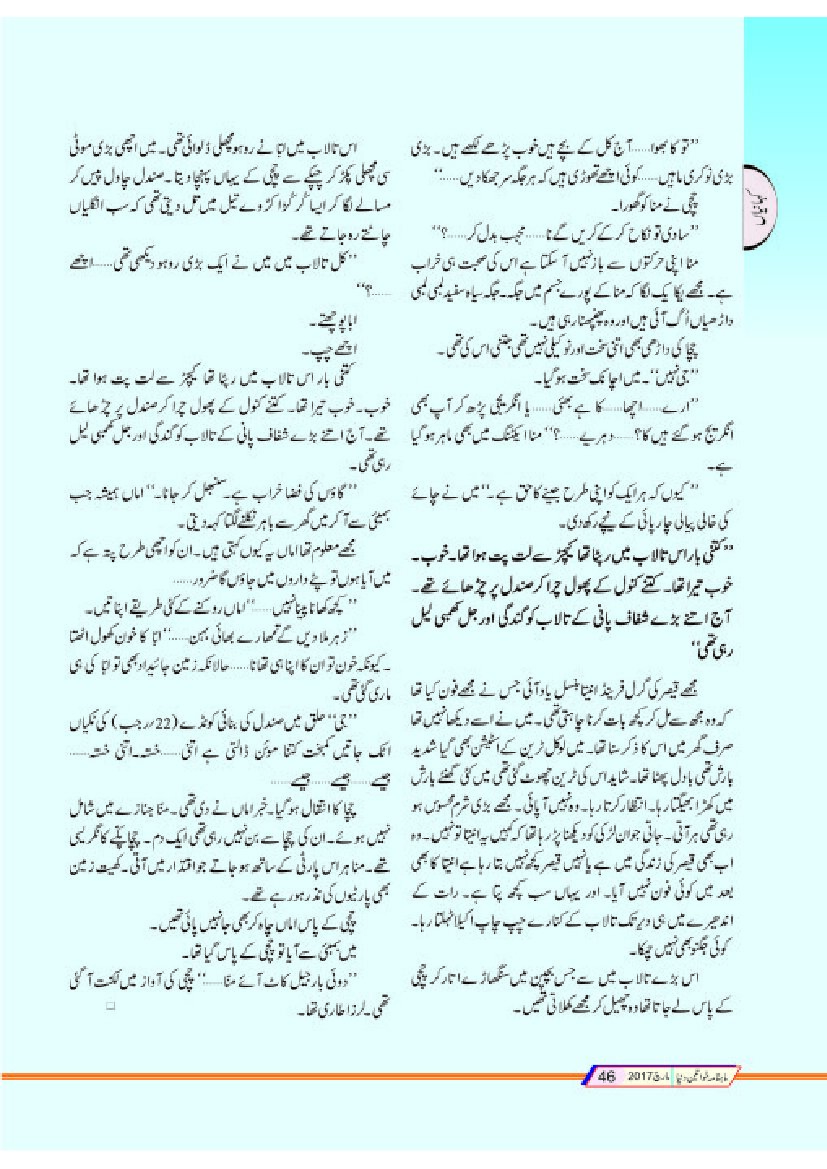 ’’تو کا بھوا......آج کل کے بچے ہیں خوب پڑھے لکھے ہیں۔ بڑی
بڑی نوکری ماہیں......کوئی اچھے تھوڑی ہیں کہ ہر جگہ سر جھکا دیں......‘‘
چچی نے منا کو گھورا۔
’’سادی تو نکاح کر کے کریں گے نا......مجہب بدل کر......؟‘‘
منا اپنی حرکتوں سے باز نہیں آ سکتا ہے اس کی صحبت ہی خراب
ہے۔ مجھے یکا یک لگا کہ منا کے پورے جسم میں جگہ۔جگہ سیاہ سفید لمبی لمبی
داڑھیاں اُگ آئی ہیں اور وہ پہنچھنا رہی ہیں۔
چچا کی داڑھی بھی اتنی سخت اور نوکیلی نہیں تھی جتنی اس کی تھی۔
’’جی نہیں‘‘۔ میں اچانک سخت ہو گیا۔
’’ارے......اچھا......کا ہے بھئی...... یا انگریجی پڑھ کر آپ بھی
انگریج ہو گئے ہیں کا؟......دہریے......؟‘‘ منا ایکٹنگ میں بھی ماہر ہو گیا
ہے۔
’’کیوں کہ ہر ایک کو اپنی طرح جینے کا حق ہے۔‘‘ میں نے چائے
کی خالی پیالی چارپائی کے نیچے رکھ دی۔
’’کتنی بار اس تالاب میں رپٹا تھا کیچڑ سے لت پت ہوا تھا۔ خوب۔
خوب تیرا تھا۔ کتنے کنول کے پھول چرا کر صندل پر چڑھائے تھے۔
آج اتنے بڑے شفاف پانی کے تالاب کو گندگی اور جل کمھبی لیل
رہی تھی‘‘
مجھے قیصر کی گرل فرینڈ انیتا بنسل یاد آئی جس نے مجھے فون کیا تھا
کہ وہ مجھ سے مل کر کچھ بات کرنا چاہتی تھی۔ میں نے اسے دیکھا نہیں تھا
صرف گھر میں اس کا ذکر سنا تھا۔ میں لوکل ٹرین کے اسٹیشن بھی گیا شدید
بارش تھی بادل پھٹا تھا۔ شاید اس کی ٹرین چھوٹ گئی تھی میں کئی گھنٹے بارش
میں کھڑا بھیگتا رہا۔ انتظار کرتا رہا۔ وہ نہیں آ پائی۔ مجھے بڑی شرم محسوس ہو
رہی تھی ہر آتی۔ جاتی جوان لڑکی کو دیکھنا پڑ رہا تھا کہ کہیں یہ انیتا تو نہیں۔ وہ
اب بھی قیصر کی زندگی میں ہے یا نہیں قیصر کچھ نہیں بتا رہا ہے انیتا کا بھی
بعد میں کوئی فون نہیں آیا۔ اور یہاں سب کچھ پتا ہے۔ رات کے
اندھیرے میں ہی دیر تک تالاب کے کنارے چپ چاپ اکیلا ٹہلتا رہا۔
کوئی جگنو بھی نہیں چمکا۔
اس بڑے تالاب میں سے جس بچپن میں سنگھاڑے اتار کر چچی
کے پاس لے جاتا تھا وہ چھیل کر مجھے کھلاتی تھیں۔
اس تالاب میں ابّا نے روہو مچھلی ڈلوائی تھی۔ میں اچھی بڑی موٹی
سی مچھلی پکڑ کر چپکے سے چچی کے یہاں پہنچا دیتا۔ صندل چاول پیس کر
مسالے لگا کر ایسا کُر کُرا کڑوے تیل میں تل دیتی تھی کہ سب انگلیاں
چاٹتے رہ جاتے تھے۔
’’کل تالاب میں میں نے ایک بڑی روہو دیکھی تھی......اچھے
......؟‘‘
ابا پوچھتے۔
اچھے چپ۔
کتنی بار اس تالاب میں رپٹا تھا کیچڑ سے لت پت ہوا تھا۔
خوب۔ خوب تیرا تھا۔ کتنے کنول کے پھول چرا کر صندل پر چڑھائے
تھے۔ آج اتنے بڑے شفاف پانی کے تالاب کو گندگی اور جل کمھبی لیل
رہی تھی۔
’’گاؤں کی فضا خراب ہے۔ سنبھل کر جانا۔‘‘ اماں ہمیشہ جب
بمبئی سے آ کر میں گھر سے باہر نکلنے لگتا کہہ دیتی۔
مجھے معلوم تھا اماں یہ کیوں کہتی ہیں۔ ان کو اچھی طرح پتہ ہے کہ
میں آیا ہوں تو پٹے داروں میں جاؤں گا ضرور......
’’کچھ کھانا پینا نہیں......‘‘ اماں روکنے کے کئی طریقے اپناتیں۔
’’زہر ملا دیں گے تمھارے بھائی بہن......‘‘ ابّا کا خون کھول اٹھتا
۔ کیونکہ خون تو ان کا اپنا ہی تھا نا......حالانکہ زمین جائیداد بھی تو ابّا کی ہی
ماری گئی تھی۔
’’جی‘‘ حلق میں صندل کی بنائی کونڈے (22؍رجب) کی ٹکیاں
اٹک جاتیں کمبخت کتنا موئن ڈالتی ہے اتنی......خستہ۔ اتنی خستہ......
جیسے......جیسے......جیسے......
چچا کا انتقال ہو گیا۔ خبر اماں نے دی تھی۔ منا جنازے میں شامل
نہیں ہوئے۔ ان کی چچا سے بن نہیں رہی تھی ایک دم۔ چچا پکّے کانگریسی
تھے۔ منا ہر اس پارٹی کے ساتھ ہو جاتے جو اقتدار میں آتی۔ کھیت زمین
بھی پارٹیوں کی نذر ہو رہے تھے۔
چچی کے پاس اماں چاہ کر بھی جا نہیں پائی تھیں۔
میں بمبئی سے آیا تو چچی کے پاس گیا تھا۔
’’دوئی بار جیل کاٹ آئے منّا......‘‘ چچی کی آواز میں لکنت آ گئی
تھی۔ لرزا طاری تھا۔
کہانیاں
ماہنامہ خواتین دنیا | مارچ 2017 | 46